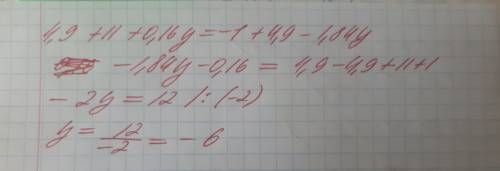 4,9 + 11 + 0,16y = -1 + 4,9 - 1,84y
-1,84y - 0,16 = 4,9 - 4,9 + 11 + 1
- 2y = 12 / : (-2)
y = 12/-2 = - 6